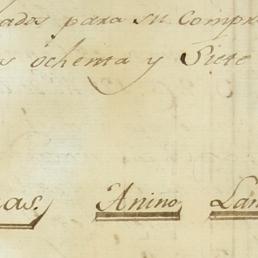 para su Compr
ochenta y Siete
as. Anino Lam